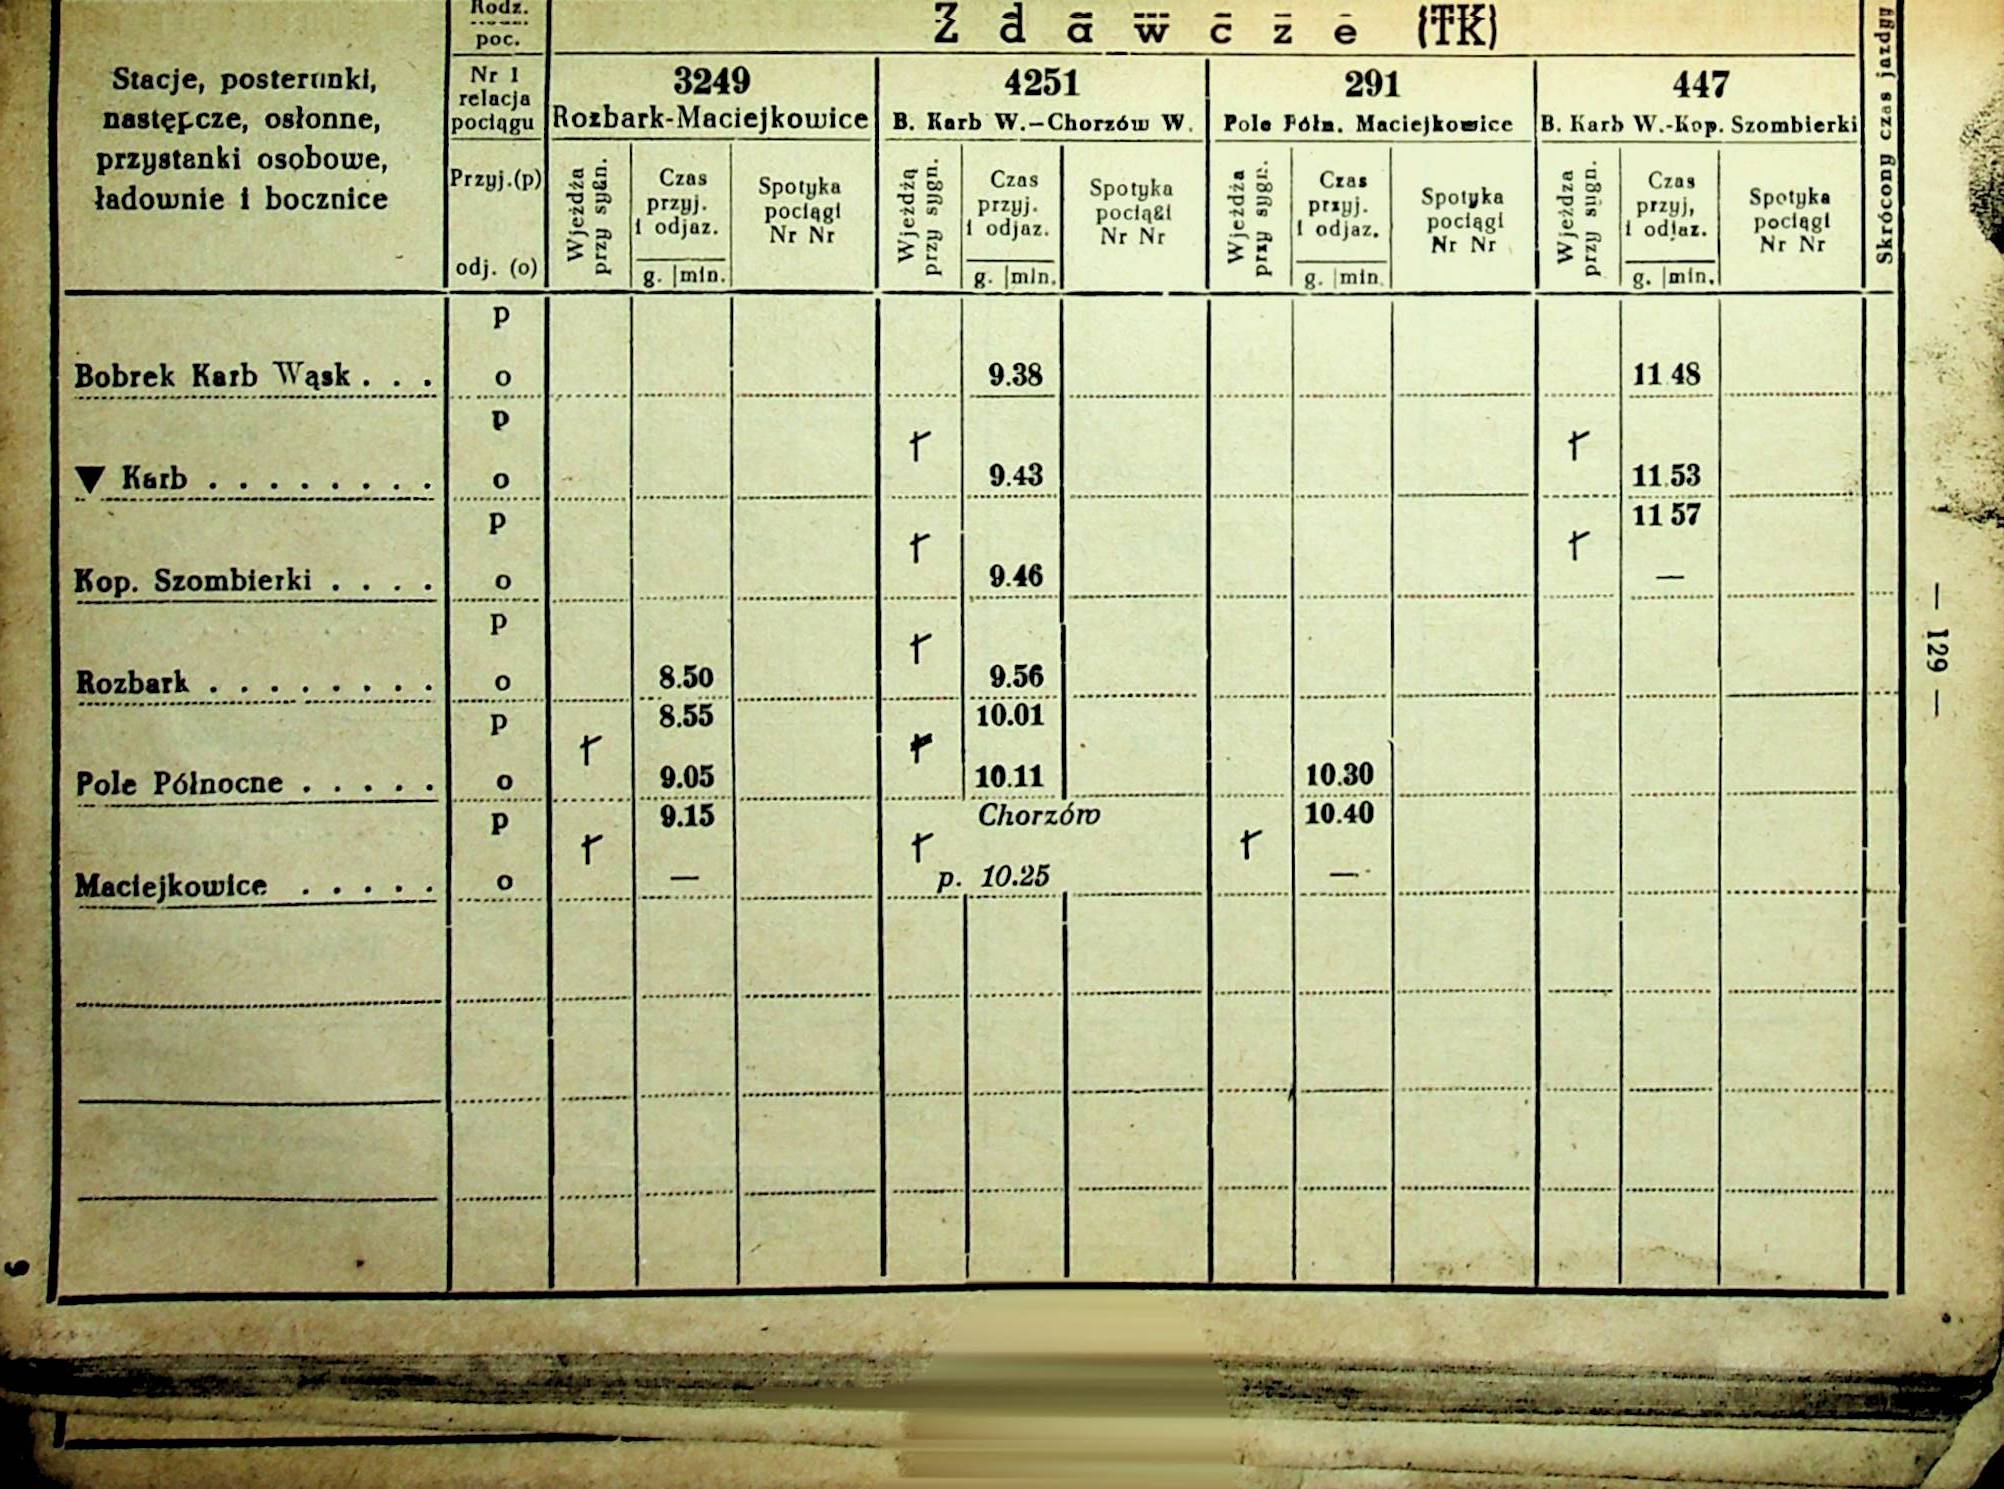 Rodz.
poc.
Z d a w c z e (TK)
Stacje, posterunki,
następcze, osłonne,
przystanki osobowe,
ładownie i bocznice
Nr i
relacja
pociągu
Przyj.(p)
odj. (o)
3249
Rozbark-Maciejkowice
4251
B. Karb W.-Chorzów W.
291
Pole Półn. Maciejkowice
447
B. Karb W.-Kop. Szombierki
Skrócony czas jazdy
Wjeżdża
przy sygn.
Czas
przyj.
i odjaz.
g. | min.
Spotyka
pociągi
Nr Nr
Wjeżdżą
przy sygn.
Czas
przyj.
i odjaz.
g. | min.
Spotyka
pociągi
Nr Nr
Wjeżdża
przy sygn.
Czas
przyj.
i odjaz.
g. | min.
Spotyka
pociągi
Nr Nr
Wjeżdza
przy sygn.
Czas
przyj,
i odjaz.
g. | min.
Spotyka
pociągi
Nr Nr
p
Bobrek Karb Wąsk . . . o 9.38 11 48
p
▼ Karb . . . . . . . . o 9.43 11.53
p 11 57
Kop. Szombierki . . . . o 9.46 —
p
Rozbark . . . . . . . . o 8.50 9.56
p 8.55 10.01
Pole Północne . . . . . o 9.05 10.11 10.30
p 9.15 Chorzów 10.40
Maciejkowice . . . . . o — p. 10.25 —
— 129 —